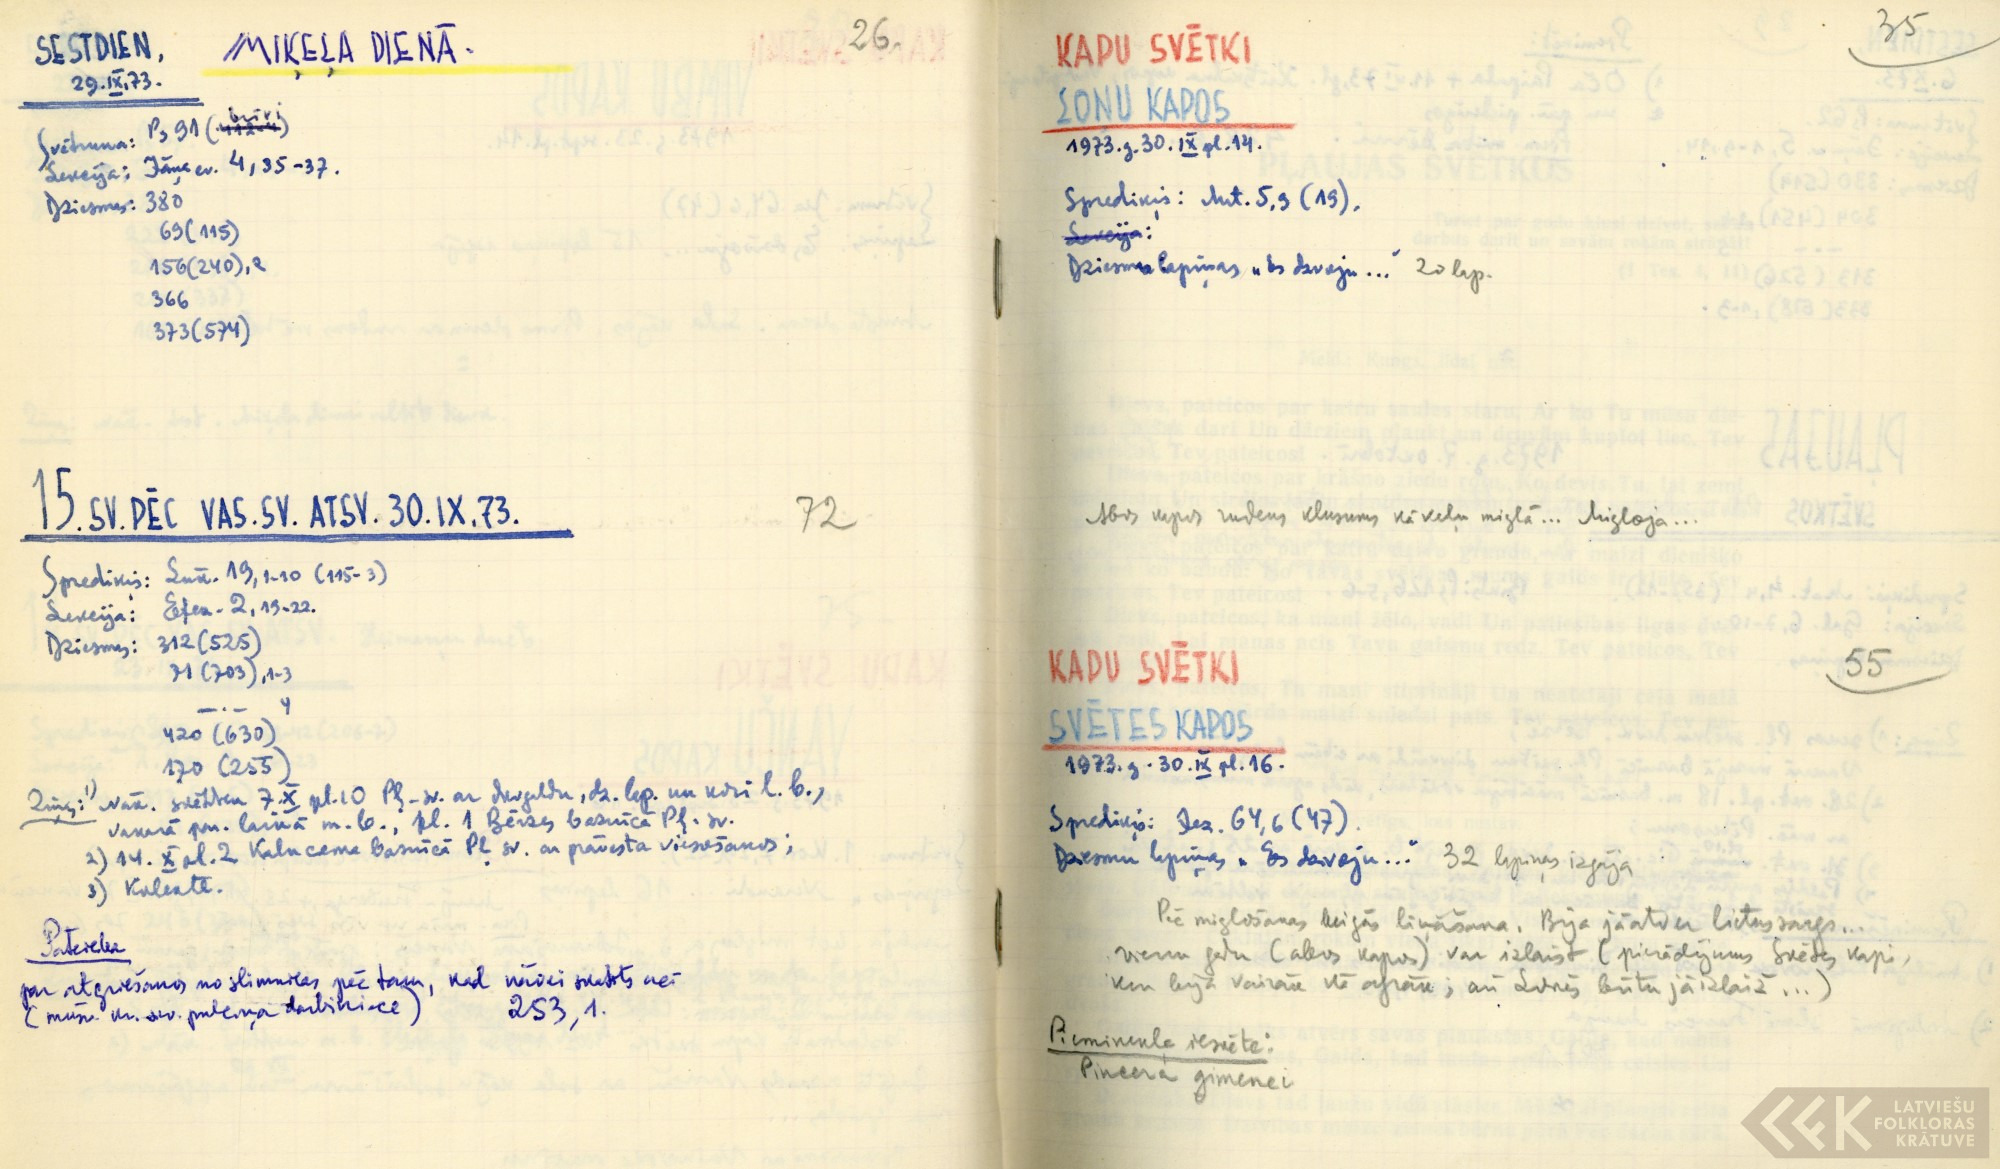 SESTDIEN, MIĶEĻA DIENĀ. 26.
29.IX.73.
Svētruna: Ps 91 (brīvi)
Lekcija: Jāņa ev. 4, 35-37.
Dziesmas: 380
69(115)
156(240),2
366
373(574)
15.SV.PĒC VAS.SV. ATSV. 30.IX.73. 72
Sprediķis: Lūk. 19, 1-10 (115-3)
Lekcija: Efez. 2, 19-22.
Dziesmas: 312(525)
71(703),1-3
— . — 4
420(630)
170(255)
Ziņ.: 1) nāk. svētdien 7.X pl.10 Pļ-sv. ar dievgaldu, dz. lap. un kori l. b.,
vakarā par. laikā m.b., pl. 1 Bērzes baznīcā Pļ. sv.
2) 14. X pl.2 Kalnciema baznīcā Pļ. sv. ar prāvesta viesošanos;
3) Kolekte.
Pateicība
par atgriešanos no slimnīcas pēc tam, kad nāvei skatīts acī
(mūsu kr. sv. pulciņa darbiniece) 253, 1.
KAPU SVĒTKI 35
LOŅU KAPOS
1973.g. 30.IX pl.14.
Sprediķis: Mt. 5,9 (19).
Lekcija:
Dziesmas lapiņas „Es dzīvoju..." 20 lap.
Abos kapos rudens klusums kā veļu miglā... Migloja...
KAPU SVĒTKI 55
SVĒTES KAPOS
1973.g. 30.IX pl.16.
Sprediķis: Jez. 64,6 (47).
Dziesmu lapiņas „Es dzīvoju..." 32 lapiņas izgāja
Pēc miglošanas beigās liņāšana. Bija jāatver lietussargs...
vienu gadu (abos kapos) var izlaist (pierādījums Svētes kapi,
kur bija vairāk kā agrāk; arī Loņos būtu jāizlaiž...)
Pieminekļa iesvēte:
Pincera ģimenei
LATVIEŠU
FOLKLORAS
KRĀTUVE